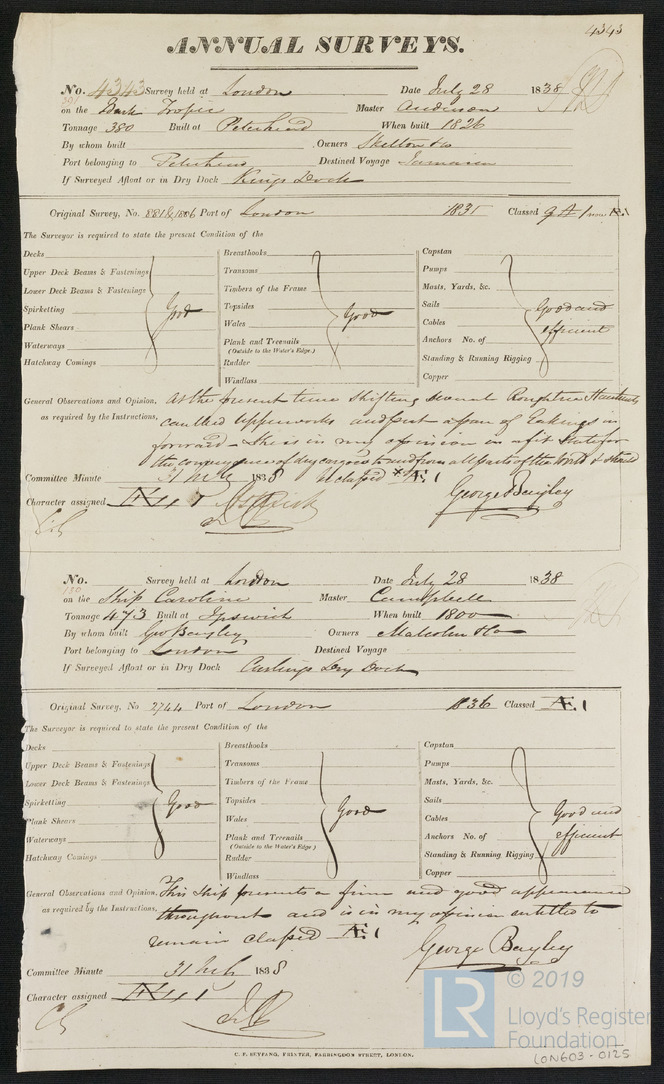 4343
ANNUAL SURVEYS.
No. 4343 Survey held at London Date July 28 1838
on the Bark Tropic Master Anderson
Tonnage 380 Built at Peterhead When built 1826
By whom built Owners Skelton & Co
Port belonging to Peterhead Destined Voyage Jamaica
If Surveyed Afloat or in Dry Dock Kings Dock
Original Survey, No. Port of London 1835 Classed 9 A 1 now Æ 1
The Surveyor is required to state the present Condition of the
Decks
Upper Deck Beams & Fastenings
Lower Deck Beams & Fastenings
Spirketting
Plank Shears
Waterways
Hatchway Comings
Good
Breasthooks
Transoms
Timbers of the Frame
Topsides
Wales
Plank and Treenails
(Outside to the Water's Edge.)
Rudder
Windlass
Good
Capstan
Pumps
Masts, Yards, &c.
Sails
Cables
Anchors No. of
Standing & Running Rigging
Copper
Good and
efficient
General Observations and Opinion, At the present time shifting several Roughtree Stantions
as required by the Instructions, caulked upperworks and put a pair of in
forward – She is in my opinion in a fit state for
the conveyance of dry cargoes to and from all parts of the World & should
Committee Minute 31 July 1838 be classed * Æ 1
Character assigned Æ 1
George Bayley
No. Survey held at London Date July 28 1838
on the Ship Caroline Master Campbell
Tonnage 473 Built at Ipswich When built 1800
By whom built Geo Bayley Owners Malcolm & Co
Port belonging to London Destined Voyage
If Surveyed Afloat or in Dry Dock Curlings Dry Dock
Original Survey, No 2744 Port of London 1836 Classed Æ 1
The Surveyor is required to state the present Condition of the
Decks
Upper Deck Beams & Fastenings
Lower Deck Beams & Fastenings
Spirketting
Plank Shears
Waterways
Hatchway Comings
Good
Breasthooks
Transoms
Timbers of the Frame
Topsides
Wales
Plank and Treenails
(Outside to the Water's Edge.)
Rudder
Windlass
Good
Capstan
Pumps
Masts, Yards, &c.
Sails
Cables
Anchors No. of
Standing & Running Rigging
Copper
Good and
efficient
General Observations and Opinion, This Ship presents a firm and good appearance
as required by the Instructions, throughout and is in my opinion entitled to
remain classed Æ 1
George Bayley
Committee Minute 31 July 1838
Character assigned Æ 1
C. F. SEYFANG, PRINTER, FARRINGDON STREET, LONDON.
LR
© 2019
Lloyd's Register
Foundation
LON603-0125